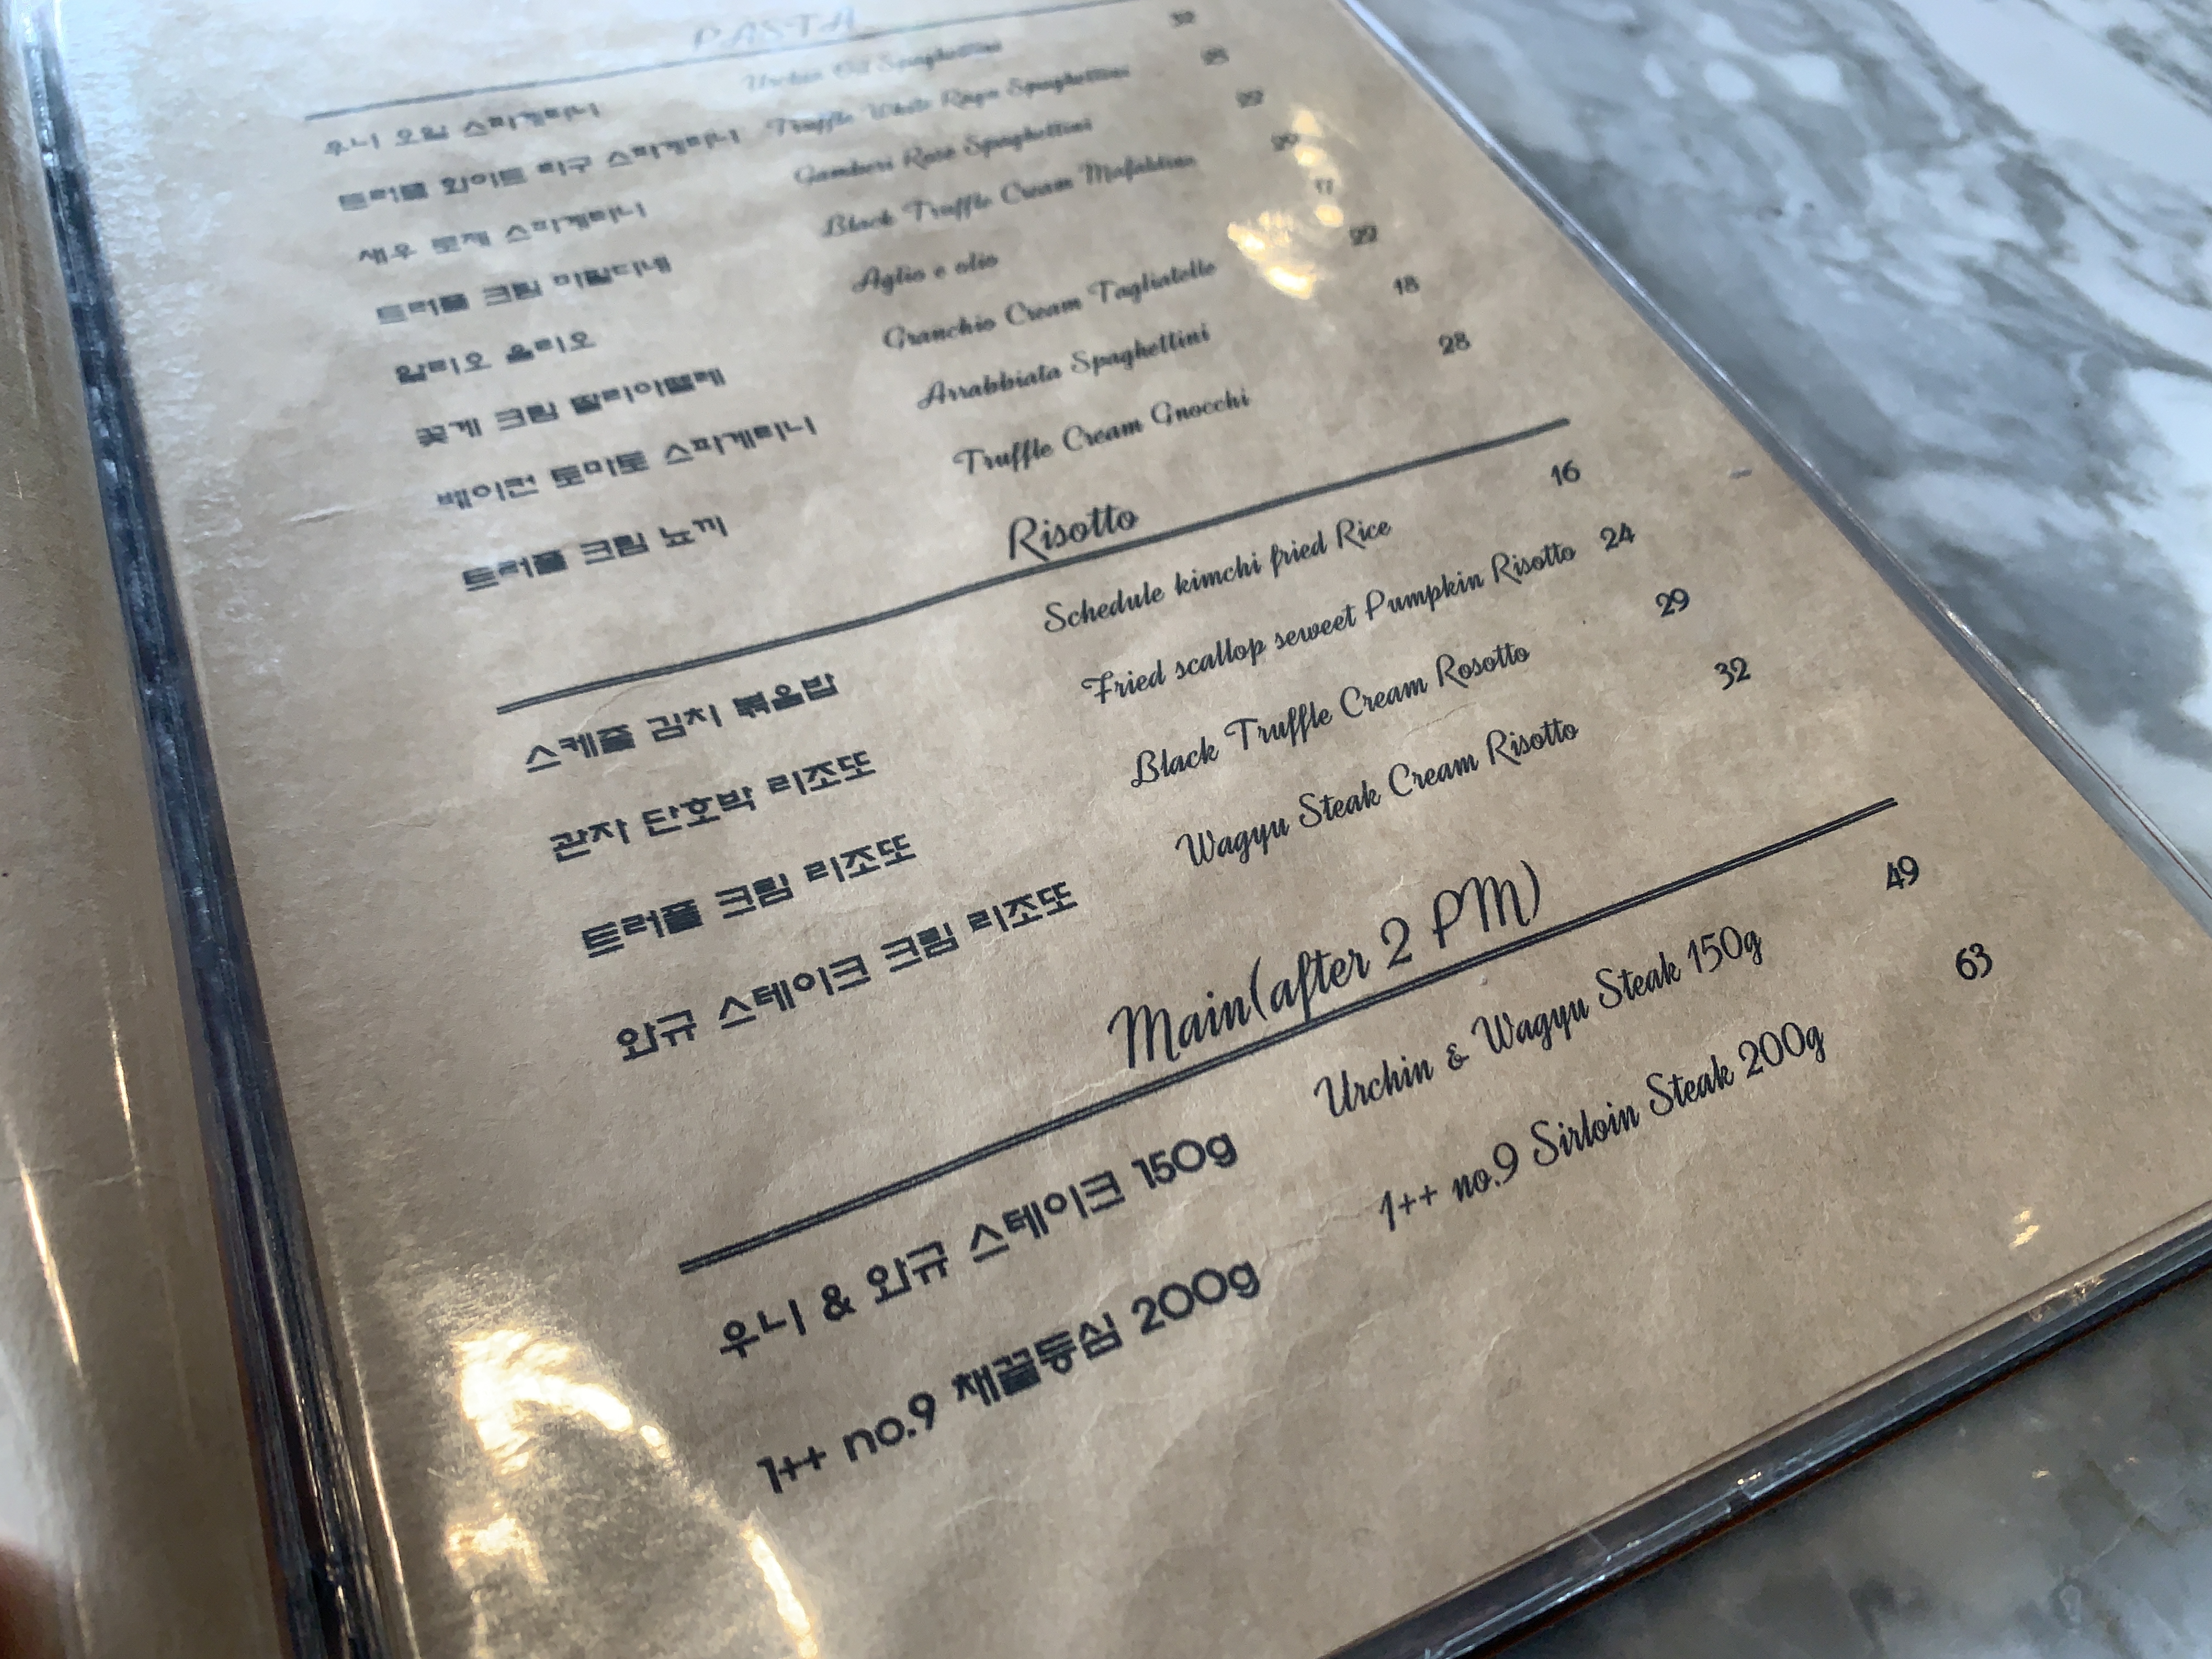 PASTA
우니 오일 스파게티니 Urchin Oil Spaghettini 32
트러플 화이트 라구 스파게티니 Truffle White Ragu Spaghettini
새우 로제 스파게티니 Gamberi Rose Spaghettini 22
트러플 크림 마팔디네 Black Truffle Cream Mafaldine
알리오 올리오 Aglio e olio 17
꽃게 크림 딸리아뗄레 Granchio Cream Tagliatelle 22
베이컨 토마토 스파게티니 Arrabbiata Spaghettini 18
트러플 크림 뇨끼 Truffle Cream Gnocchi 28
Risotto
스케줄 김치 볶음밥 Schedule kimchi fried Rice 16
관자 단호박 리조또 Fried scallop seweet Pumpkin Risotto 24
트러플 크림 리조또 Black Truffle Cream Rosotto 29
와규 스테이크 크림 리조또 Wagyu Steak Cream Risotto 32
Main(after 2 PM)
우니 & 와규 스테이크 150g Urchin & Wagyu Steak 150g 49
1++ no.9 채끝등심 200g 1++ no.9 Sirloin Steak 200g 63